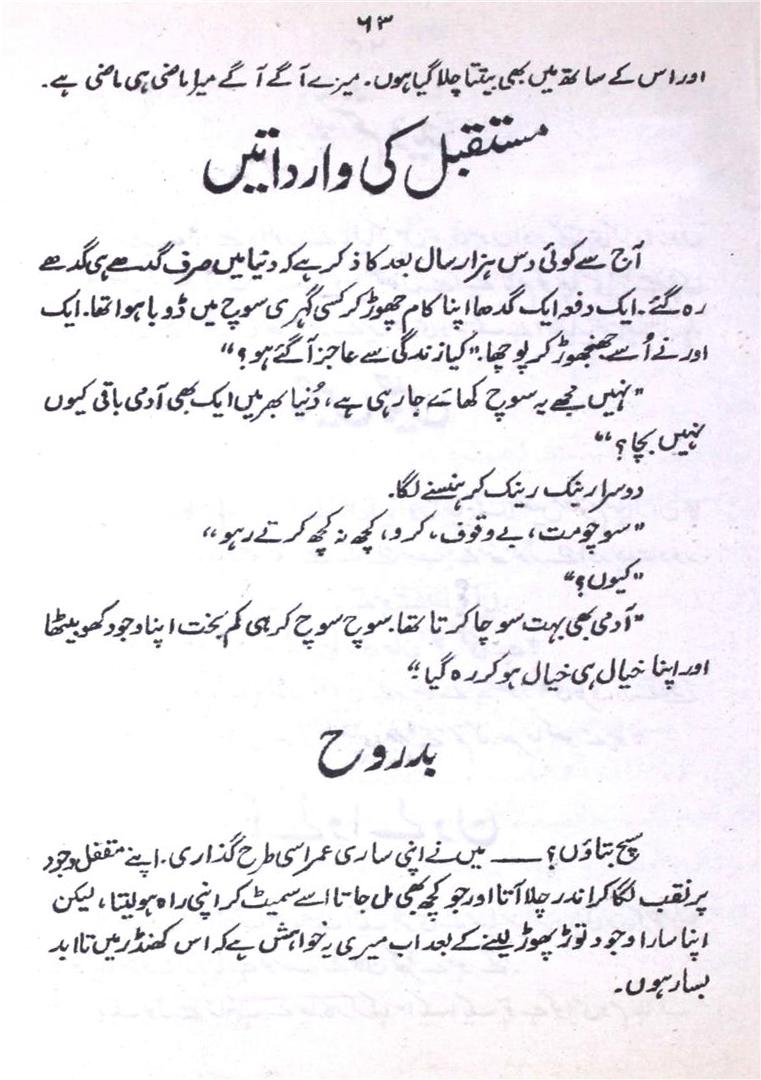 ۶۳
اور اس کے ساتھ میں بھی بیتتا چلا گیا ہوں۔ میرے آگے آگے میرا ماضی ہی ماضی ہے۔
مستقبل کی وارداتیں
آج سے کوئی دس ہزار سال بعد کا ذکر ہے کہ دنیا میں صرف گدھے ہی گدھے
رہ گئے۔ ایک دفعہ ایک گدھا اپنا کام چھوڑ کر کسی گہری سوچ میں ڈوبا ہوا تھا۔ ایک
اور نے اُسے جھنجھوڑ کر پوچھا۔ "کیا زندگی سے عاجز آ گئے ہو؟"
"نہیں مجھے یہ سوچ کھائے جا رہی ہے، دُنیا بھر میں ایک بھی آدمی باقی کیوں
نہیں بچا؟"
دوسرا رینک رینک کر ہنسنے لگا۔
"سوچو مت، بے وقوف، کرو، کچھ نہ کچھ کرتے رہو"
"کیوں؟"
"آدمی بھی بہت سوچا کرتا تھا۔ سوچ سوچ کر ہی کم بخت اپنا وجود کھو بیٹھا
اور اپنا خیال ہی خیال ہو کر رہ گیا۔"
بدروح
سچ بتاؤں؟ —— میں نے اپنی ساری عمر اسی طرح گذاری۔ اپنے مقفل وجود
پر نقب لگا کر اندر چلا آتا اور جو کچھ بھی مل جاتا اسے سمیٹ کر اپنی راہ ہو لیتا، لیکن
اپنا سارا وجود توڑ پھوڑ لینے کے بعد اب میری یہ خواہش ہے کہ اس کھنڈر میں تا ابد
بسا رہوں۔